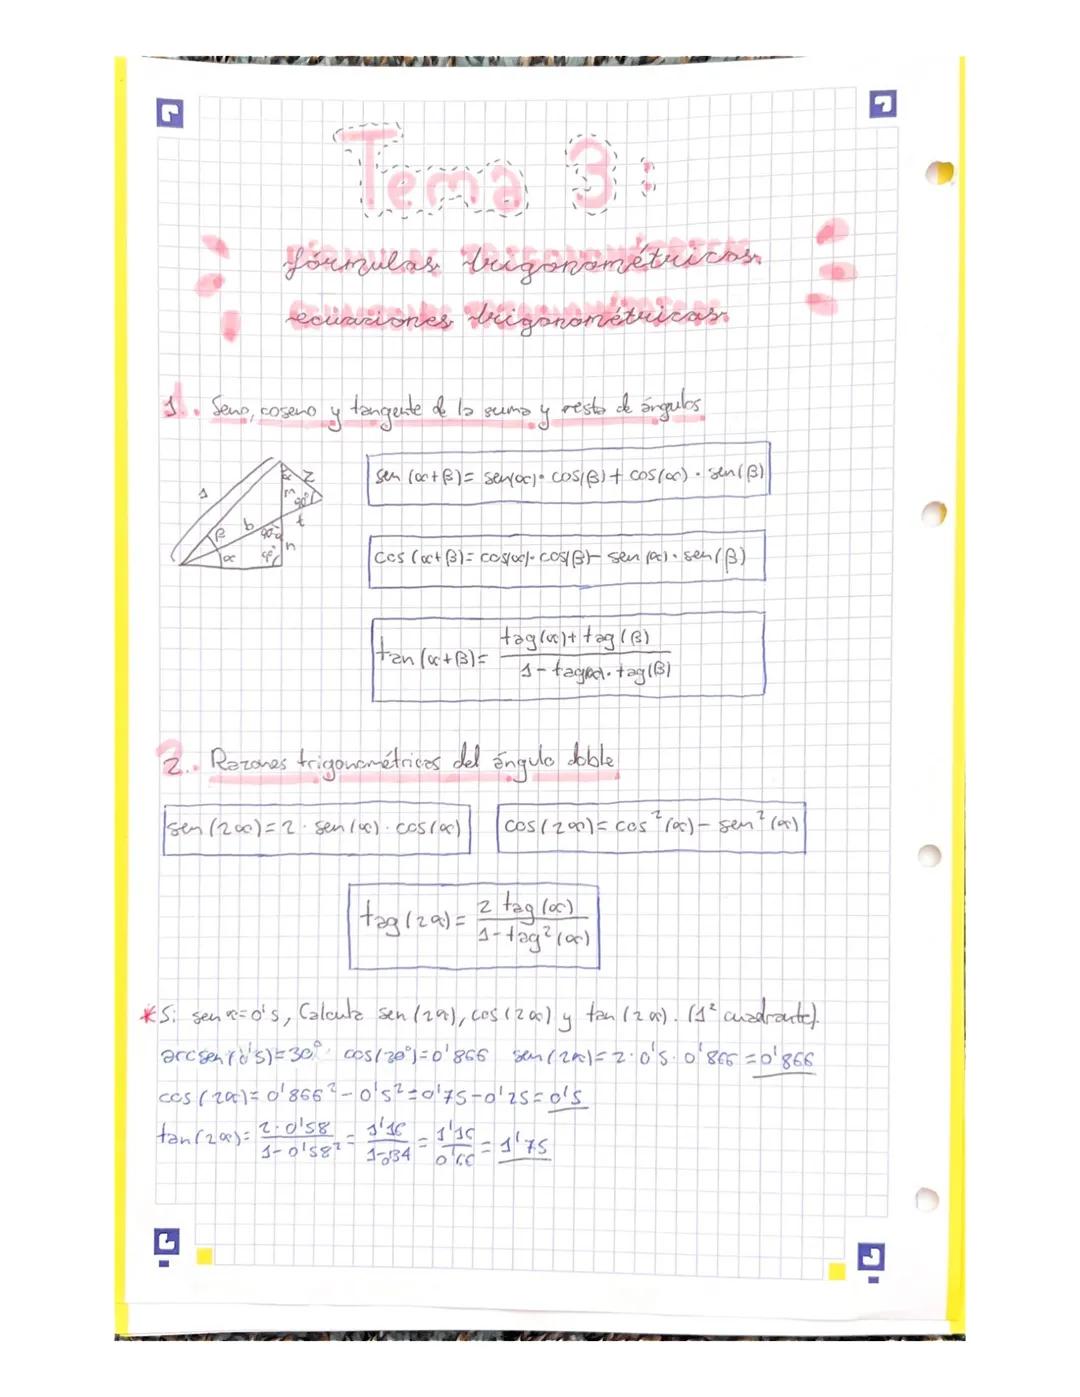 Tema 3:
fórmulas trigonométricas
ecuaciones trigonométricas
1. Seno, coseno y tangente de la suma y resta de ángulos
sen (α+β)= sen(α)· cos(β)+ cos(α) · sen(β)
cos (α+β)= cos(α)· cos(β)- sen (α) · sen (β)
tan (α+β)= tag(α)+ tag(β) / 1- tag(α)· tag(β)
1
α
z
m
90°
β
b
t
90-α
n
α
90°
2. Razones trigonométricas del ángulo doble
sen (2α)= 2 · sen (α) · cos(α)
cos(2α)= cos²(α)- sen²(α)
tag(2α)= 2 tag(α) / 1- tag²(α)
* Si sen α=0's, Calcula sen (2α), cos (2α) y tan (2α). (1º cuadrante).
arcsen(0'5)=30° cos(30°)=0'866 sen(2α)= 2·0'5·0'866 =0'866
cos(2α)= 0'866²- 0'5²=0'75-0'25= 0'5
tan(2α)= 2·0'58 / 1-0'58² = 1'16 / 1-0'34 = 1'16 / 0'66 = 1'75